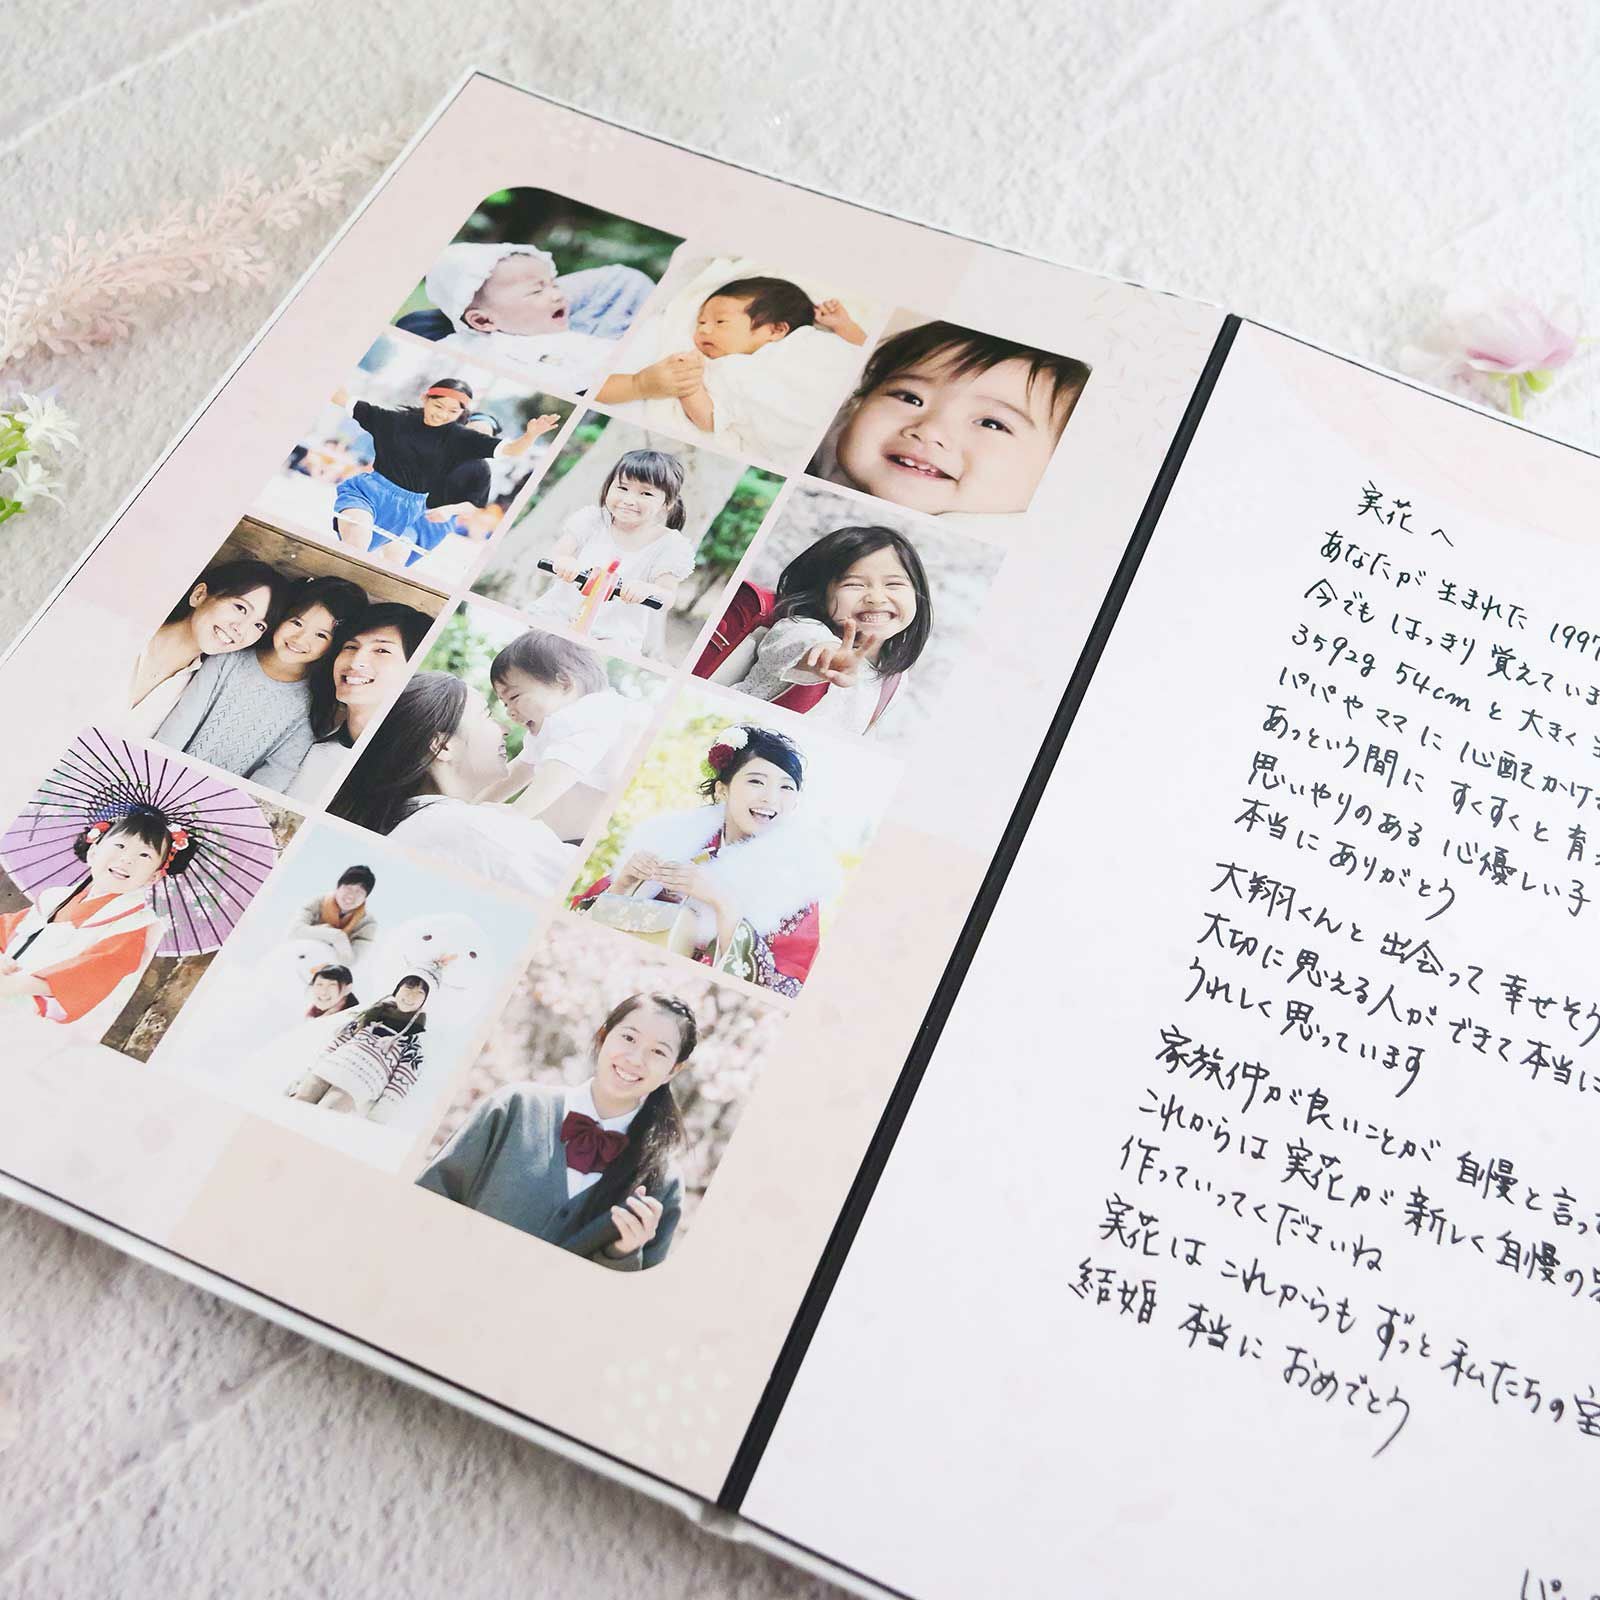 実花へ
あなたが 生まれた 1997
今でも はっきり 覚えていま
3592g 54cm と 大きく
パパやママに 心配かけ
あっという間に すくすくと 育
思いやりのある 心優しい子
本当に ありがとう
大翔くんと 出会って 幸せそう
大切に思える人が できて 本当に
うれしく 思っています
家族仲が良いことが 自慢と言って
これからは 実花が 新しく 自慢の
作っていってくださいね
実花は これからも ずっと 私たちの宝
結婚 本当に おめでとう
パ